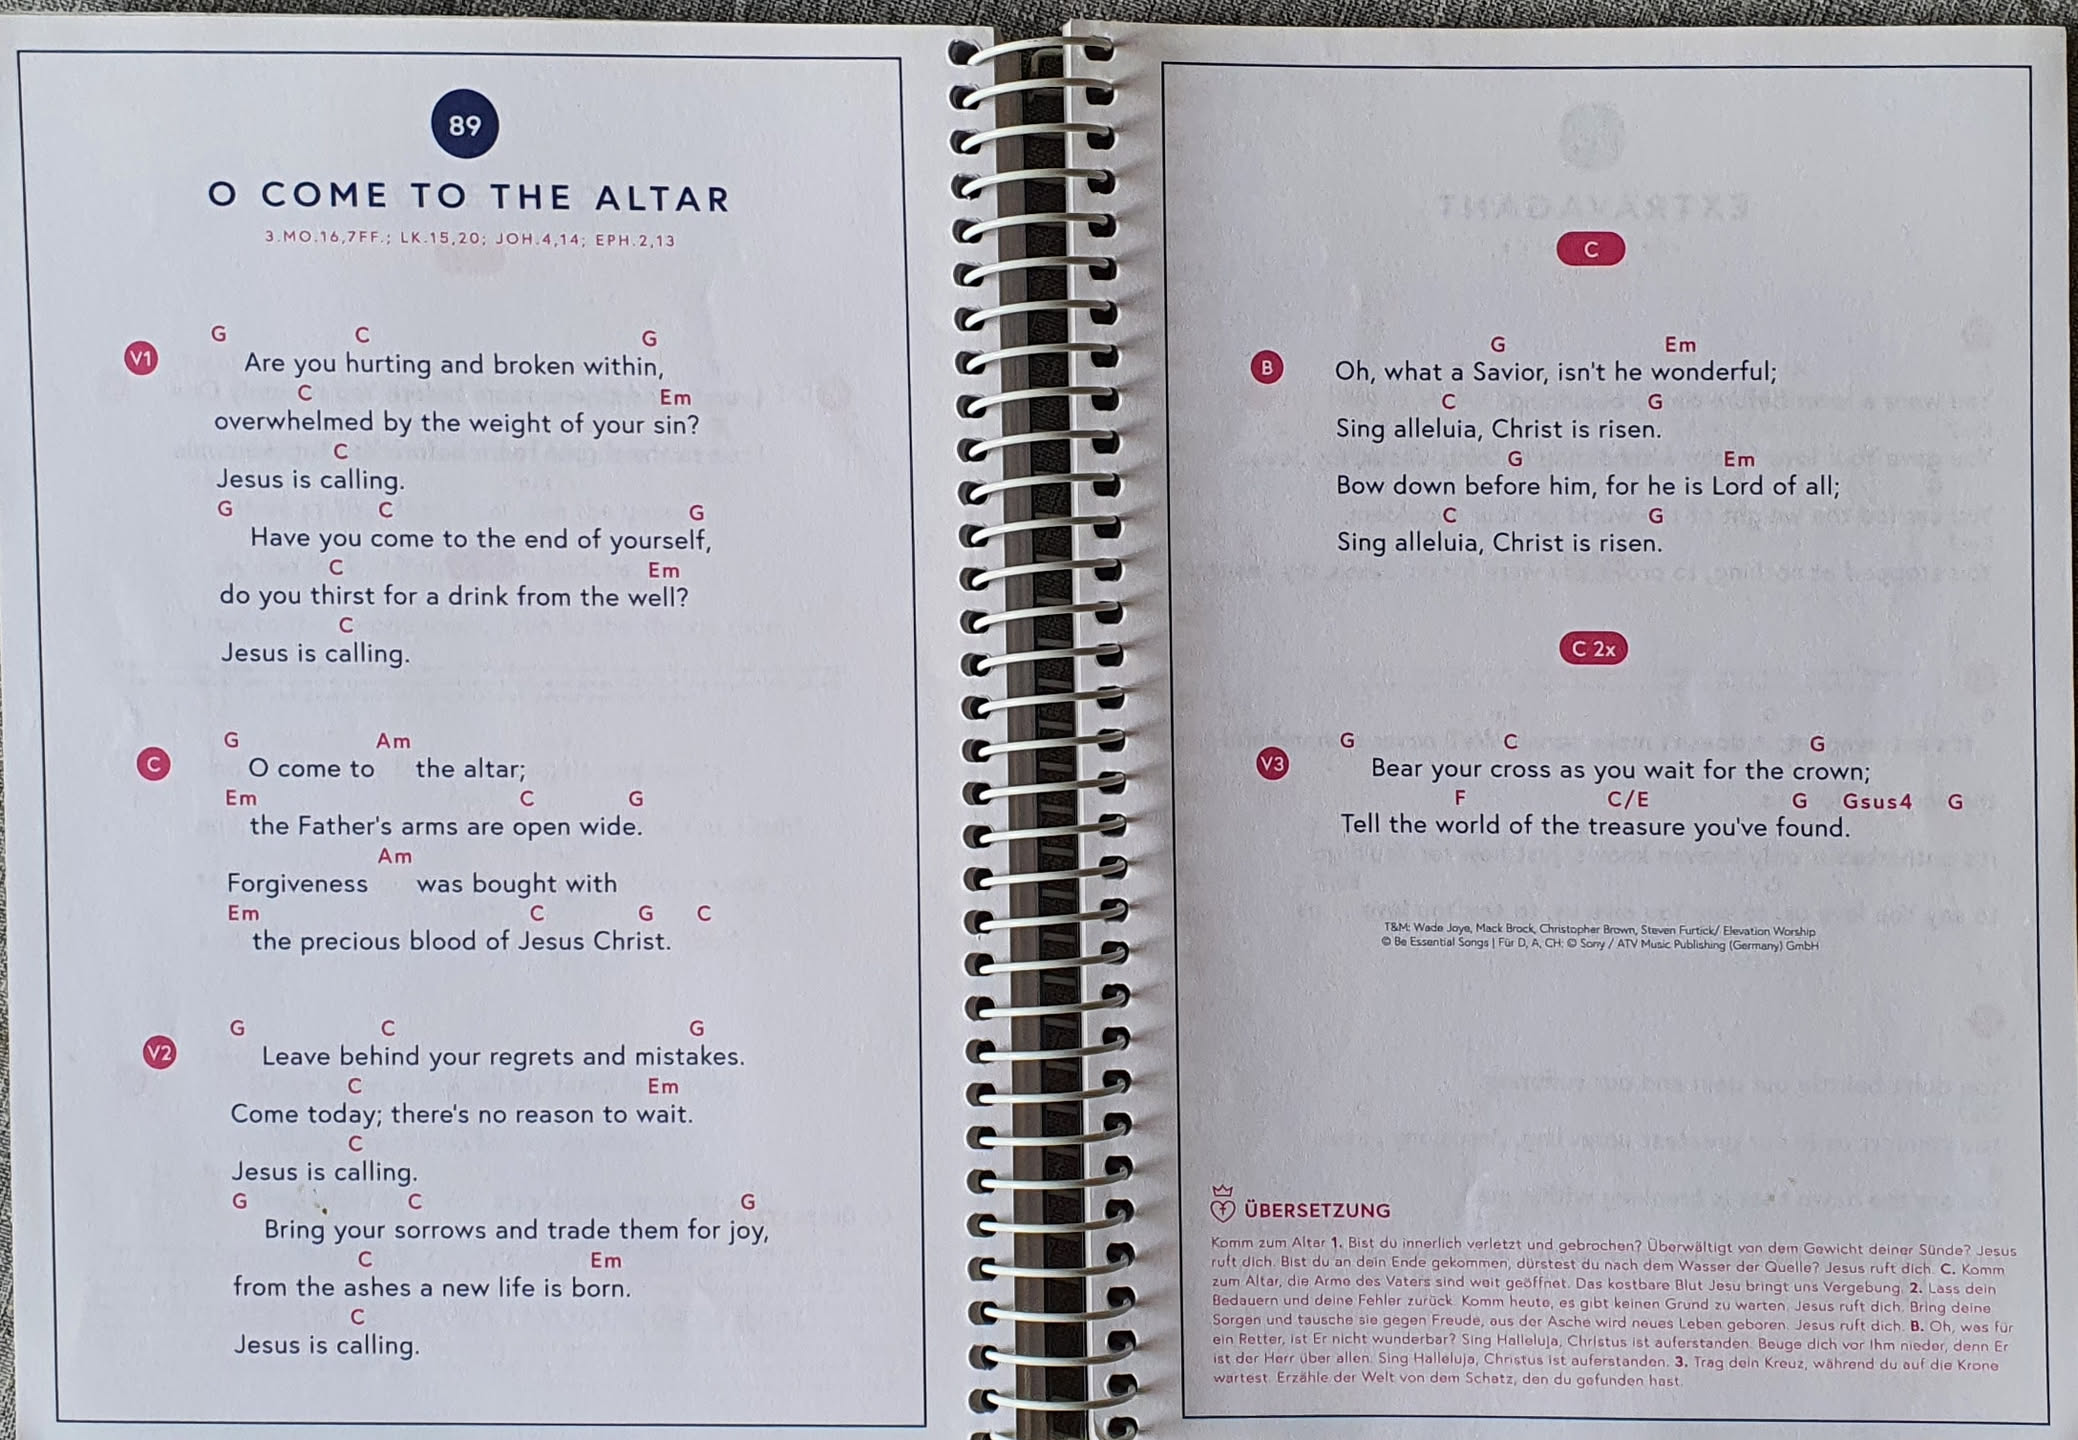 89
O COME TO THE ALTAR
3.MO.16,7FF.; LK.15,20; JOH.4,14; EPH.2,13
G C G
V1 Are you hurting and broken within,
C Em
overwhelmed by the weight of your sin?
C
Jesus is calling.
G C G
Have you come to the end of yourself,
C Em
do you thirst for a drink from the well?
C
Jesus is calling.
G Am
C O come to the altar;
Em C G
the Father's arms are open wide.
Am
Forgiveness was bought with
Em C G C
the precious blood of Jesus Christ.
G C G
V2 Leave behind your regrets and mistakes.
C Em
Come today; there's no reason to wait.
C
Jesus is calling.
G C G
Bring your sorrows and trade them for joy,
C Em
from the ashes a new life is born.
C
Jesus is calling.
C
G Em
B Oh, what a Savior, isn't he wonderful;
C G
Sing alleluia, Christ is risen.
G Em
Bow down before him, for he is Lord of all;
C G
Sing alleluia, Christ is risen.
C 2x
G C G
V3 Bear your cross as you wait for the crown;
F C/E G Gsus4 G
Tell the world of the treasure you've found.
T&M: Wade Joye, Mack Brock, Christopher Brown, Steven Furtick/ Elevation Worship
© Be Essential Songs | Für D, A, CH: © Sony / ATV Music Publishing (Germany) GmbH
ÜBERSETZUNG
Komm zum Altar 1. Bist du innerlich verletzt und gebrochen? Überwältigt von dem Gewicht deiner Sünde? Jesus
ruft dich. Bist du an dein Ende gekommen, dürstest du nach dem Wasser der Quelle? Jesus ruft dich. C. Komm
zum Altar, die Arme des Vaters sind weit geöffnet. Das kostbare Blut Jesu bringt uns Vergebung. 2. Lass dein
Bedauern und deine Fehler zurück. Komm heute, es gibt keinen Grund zu warten. Jesus ruft dich. Bring deine
Sorgen und tausche sie gegen Freude, aus der Asche wird neues Leben geboren. Jesus ruft dich. B. Oh, was für
ein Retter, ist Er nicht wunderbar? Sing Halleluja, Christus ist auferstanden. Beuge dich vor Ihm nieder, denn Er
ist der Herr über allen. Sing Halleluja, Christus ist auferstanden. 3. Trag dein Kreuz, während du auf die Krone
wartest. Erzähle der Welt von dem Schatz, den du gefunden hast.